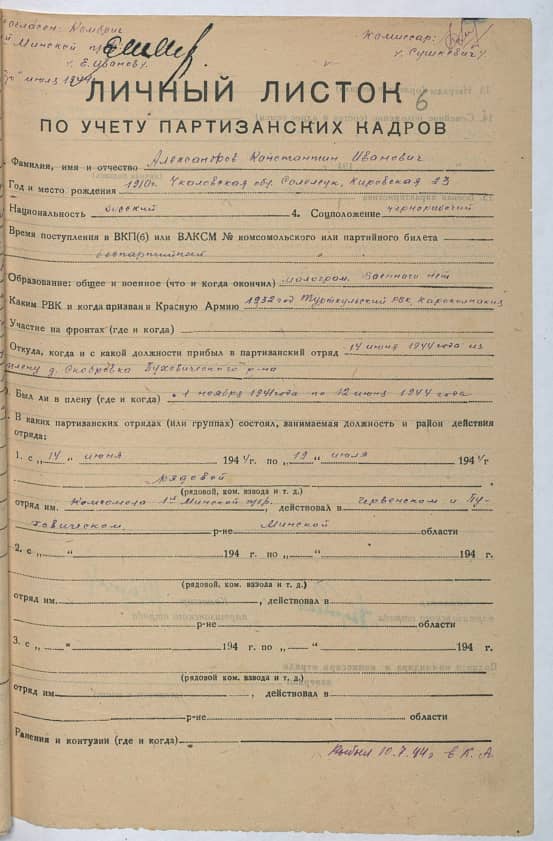 Комбриг
Комиссар:
Минской
/Сушкович/
/Е. Иванов/
июль 1944
ЛИЧНЫЙ ЛИСТОК 6
ПО УЧЕТУ ПАРТИЗАНСКИХ КАДРОВ
Фамилия, имя и отчество Александров Константин Иванович
Год и место рождения 1910г. Чкаловская обл. Кировская 23
Национальность русский 4. Соцположение чернорабочий
Время поступления в ВКП(б) или ВЛКСМ № комсомольского или партийного билета
беспартийный
Образование: общее и военное (что и когда окончил) малограм. Военного нет
Каким РВК и когда призван в Красную Армию 1932 год Турткульский РВК,
Участие на фронтах (где и когда)
Откуда, когда и с какой должности прибыл в партизанский отряд 14 июня 1944 года из
плену д. Скобровка Пуховического р-на
Был ли в плену (где и когда) с 1 ноября 1941 года по 12 июня 1944 года
В каких партизанских отрядах (или группах) состоял, занимаемая должность и район действия
отряда:
1. с „14" июня 1944 г. по „19" июля 1944 г
рядовой
(рядовой, ком. взвода и т. д.)
отряд им. Комсомола 1й Минской бриг., действовал в Червенском и Пу-
ховическом р-не Минской области
2. с „ " 194 г. по „ " 194 г.
(рядовой, ком. взвода и т. д.)
отряд им. , действовал в
р-не области
3. с „ " 194 г. по „ " 194 г.
(рядовой, ком. взвода и т. д.)
отряд им. , действовал в
р-не области
Ранения и контузии (где и когда)
Выбыл 10.7.44г в К. А.